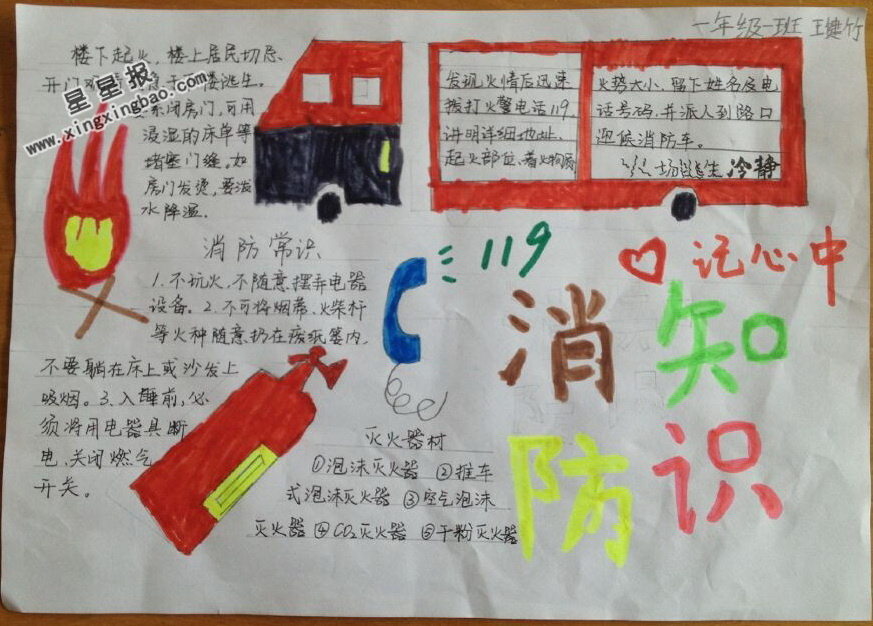 一年级一班 王键竹
楼下起火，楼上居民切忌
开门
楼逃生。
星星报
www.xingxingbao.com
闭房门，可用
浸湿的床单等
堵塞门缝。如
房门发烫，要泼
水降温。
发现火情后迅速
拨打火警电话119，
讲明详细地址、
起火部位、着火物质
火势大小、留下姓名及电
话号码，并派人到路口
迎候消防车。
场逃生 冷静
119
记心中
消防常识
1.不玩火，不随意摆弄电器
设备。2.不可将烟蒂、火柴杆
等火种随意扔在废纸篓内，
不要躺在床上或沙发上
吸烟。3、入睡前，必
须将用电器具断
电、关闭燃气
开关。
消 知
防 识
灭火器材
①泡沫灭火器 ②推车
式泡沫灭火器 ③空气泡沫
灭火器 ④CO₂灭火器 ⑤干粉灭火器